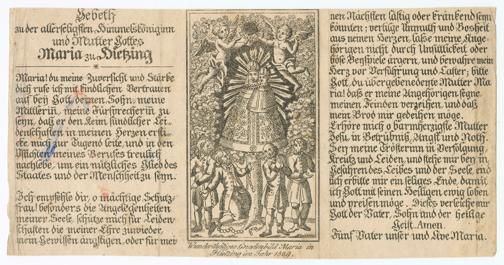 Gebeth
zu der allerseligsten Himmelskönigin
und Mutter Gottes
Maria zu Hietzing
Maria! du meine Zuversicht und Stärke
dich rufe ich mit kindlichen Vertrauen
auf bey Gott deinen Sohn, meine
Mittlerin, meine Fürsprecherin zu
seyn, daß er den Keim sündlicher Lei-
denschaften in meinen Herzen ersti-
cke mich zur Tugend leite, und in den
Pflichten meines Berufes treulich
nachlebe, um ein nützliches Glied des
Staates und der Menschheit zu seyn.
Ich empfehle dir, o mächtige Schutz-
frau! besonders die Angelegenheiten
meiner Seele, schütze mich für Leiden-
schaften die meiner Ehre zuwieder,
mein Gewissen ängstigen, oder für mei
Wunderthätiges Gnadenbild Maria in
Hietzing im Jahr
nen Nächsten lästig oder kränkend seyn
könnten; vertilge Unmuth und Bosheit
aus meinen Herzen, lasse meine Ange-
hörigen nicht durch Unsittlickeit oder
böse Beyspiele ärgern, und bewahre mein
Herz vor Verführung und Laster, bitte
Gott, du übergebenedeute Mutter Ma-
ria! daß er meine Angehörigen segne
meinen Feinden verzeihen, und daß
mein Brod mir gedeihen möge.
Erhöre mich o barmherzigste Mutter
Jesu, in Betrübniß, Angst und Noth.
Sey meine Trösterin in Verfolgung,
Kreutz und Leiden, und stehe mir bey in
Gefahren des Leibes und der Seele, end-
lich erbitte mir ein seliges Ende, damit
ich Gott mit seinen Heiligen ewig loben
und preisen möge. Dieses verleihe mir
Gott der Vater, Sohn und der heilige
Geist. Amen.
Fünf Vater unser und Ave Maria.